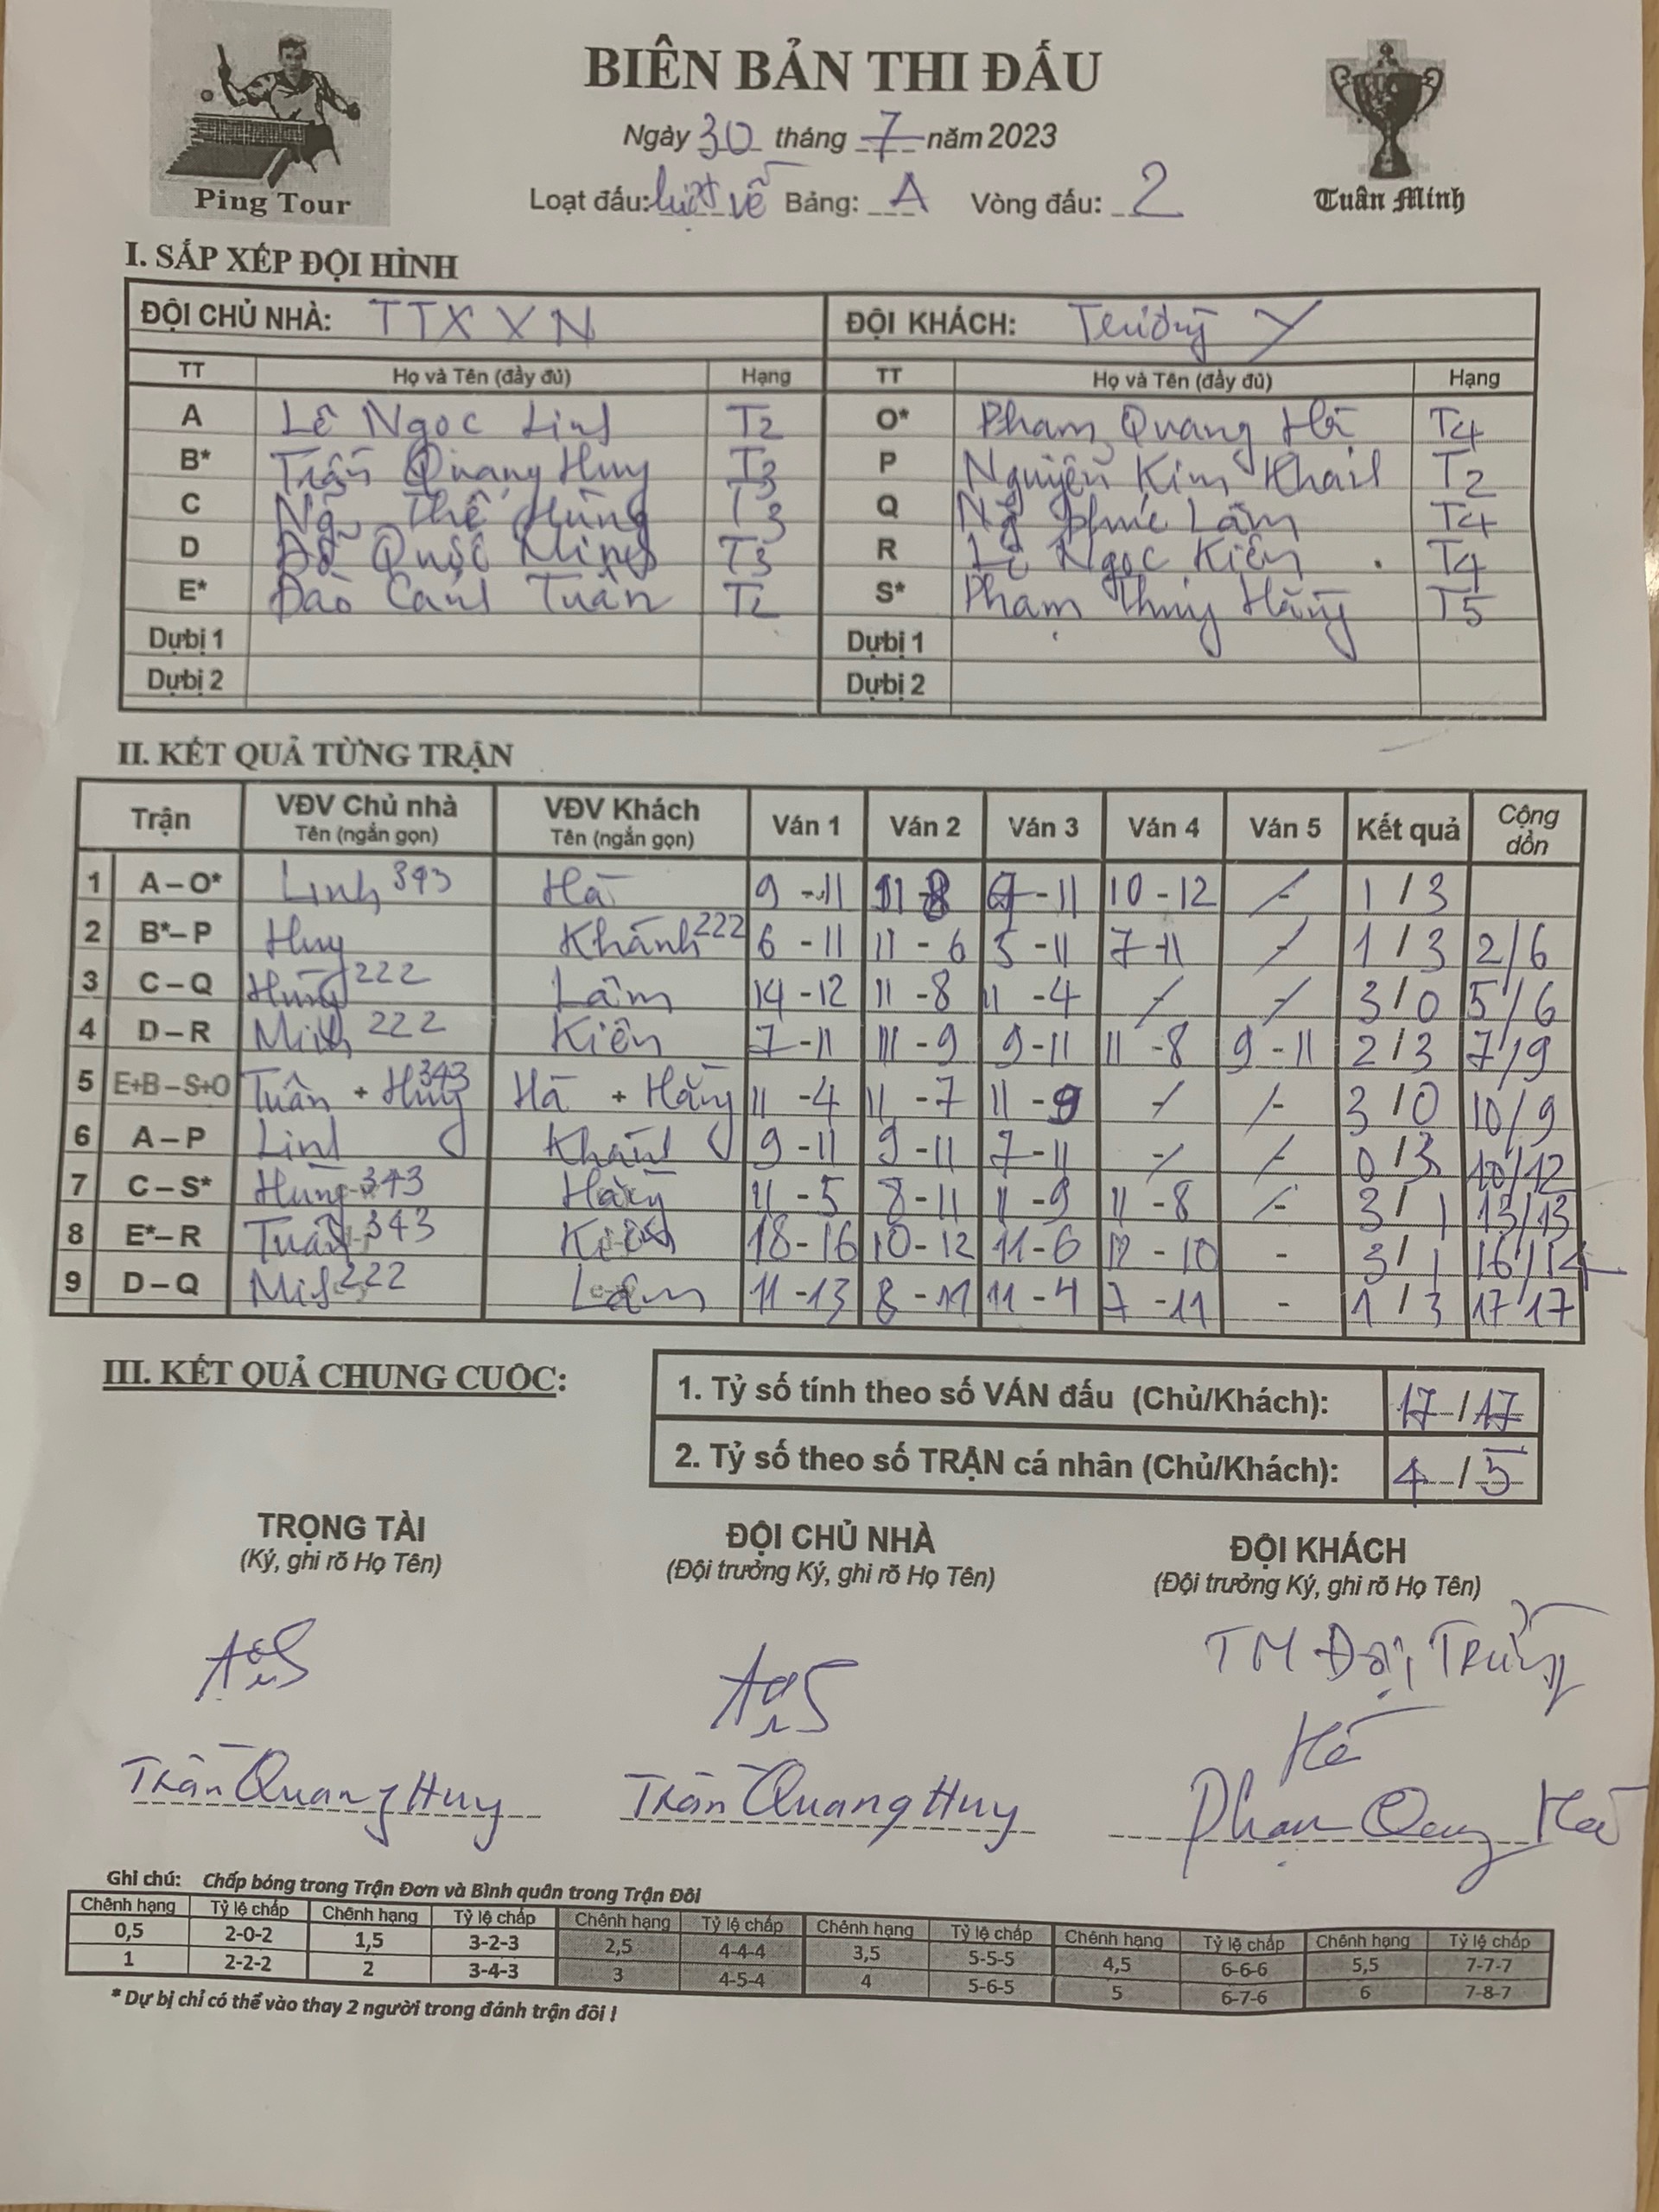 BIÊN BẢN THI ĐẤU
Ngày 30 tháng 7 năm 2023
Loạt đấu: lượt về Bảng: A Vòng đấu: 2
Ping Tour
Tuấn Minh
I. SẮP XẾP ĐỘI HÌNH
ĐỘI CHỦ NHÀ: TTXVN ĐỘI KHÁCH: Trường Y
TT Họ và Tên (đầy đủ) Hạng TT Họ và Tên (đầy đủ) Hạng
A Lê Ngọc Linh T2 O* Phạm Quang Hà T4
B* Trần Quang Huy T3 P Nguyễn Kim Khánh T2
C Ngô Thế Hùng T3 Q Ng Phúc Lâm T4
D Đỗ Quốc Minh T3 R Lê Ngọc Kiên T4
E* Đào Cảnh Tuấn T2 S* Phạm Thúy Hằng T5
Dự bị 1 Dự bị 1
Dự bị 2 Dự bị 2
II. KẾT QUẢ TỪNG TRẬN
Trận VĐV Chủ nhà Tên (ngắn gọn) VĐV Khách Tên (ngắn gọn) Ván 1 Ván 2 Ván 3 Ván 4 Ván 5 Kết quả Cộng dồn
1 A – O* Linh 343 Hà 9 - 11 11 - 8 - 11 10 - 12 - 1 / 3
2 B* – P Huy Khánh 222 6 - 11 11 - 6 5 - 11 7 - 11 - 1 / 3 2/6
3 C – Q Hùng 222 Lâm 14 - 12 11 - 8 11 - 4 - - 3 / 0 5/6
4 D – R Minh 222 Kiên 7 - 11 11 - 9 9 - 11 11 - 8 9 - 11 2 / 3 7/9
5 E+B – S+O Tuấn + Huy 343 Hà + Hằng 11 - 4 11 - 7 11 - 9 - - 3 / 0 10/9
6 A – P Linh Khánh 9 - 11 9 - 11 7 - 11 - - 0 / 3 10/12
7 C – S* Hùng 343 Hằng 11 - 5 8 - 11 11 - 9 11 - 8 - 3 / 1 13/13
8 E* – R Tuấn 343 Kiên 18 - 16 10 - 12 11 - 6 12 - 10 - 3 / 1 16/14
9 D – Q Minh 222 Lâm 11 - 13 8 - 11 11 - 4 7 - 11 - 1 / 3 17/17
III. KẾT QUẢ CHUNG CUỘC:
1. Tỷ số tính theo số VÁN đấu (Chủ/Khách): 17 / 17
2. Tỷ số theo số TRẬN cá nhân (Chủ/Khách): 4 / 5
TRỌNG TÀI ĐỘI CHỦ NHÀ ĐỘI KHÁCH
(Ký, ghi rõ Họ Tên) (Đội trưởng Ký, ghi rõ Họ Tên) (Đội trưởng Ký, ghi rõ Họ Tên)
TM Đội Trưởng
Hà
Trần Quang Huy Trần Quang Huy Phạm Quang Hà
Ghi chú: Chấp bóng trong Trận Đơn và Bình quân trong Trận Đôi
Chênh hạng Tỷ lệ chấp Chênh hạng Tỷ lệ chấp Chênh hạng Tỷ lệ chấp Chênh hạng Tỷ lệ chấp Chênh hạng Tỷ lệ chấp Chênh hạng Tỷ lệ chấp
0,5 2-0-2 1,5 3-2-3 2,5 4-4-4 3,5 5-5-5 4,5 6-6-6 5,5 7-7-7
1 2-2-2 2 3-4-3 3 4-5-4 4 5-6-5 5 6-7-6 6 7-8-7
* Dự bị chỉ có thể vào thay 2 người trong đánh trận đôi !